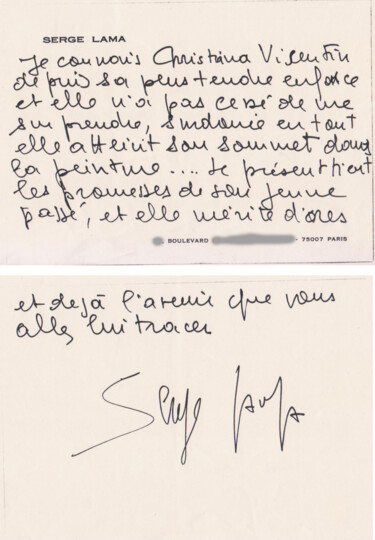 SERGE LAMA
Je connais Christina Vicentin
depuis sa plus tendre enfance
et elle n'a pas cessé de me
surprendre, en tout
elle atteint son sommet dans
la peinture.... le présent tient
les promesses de son jeune
passé, et elle mérite d'ores
BOULEVARD 75007 PARIS
et dejà l'avenir que vous
allez lui tracer
Serge Lama